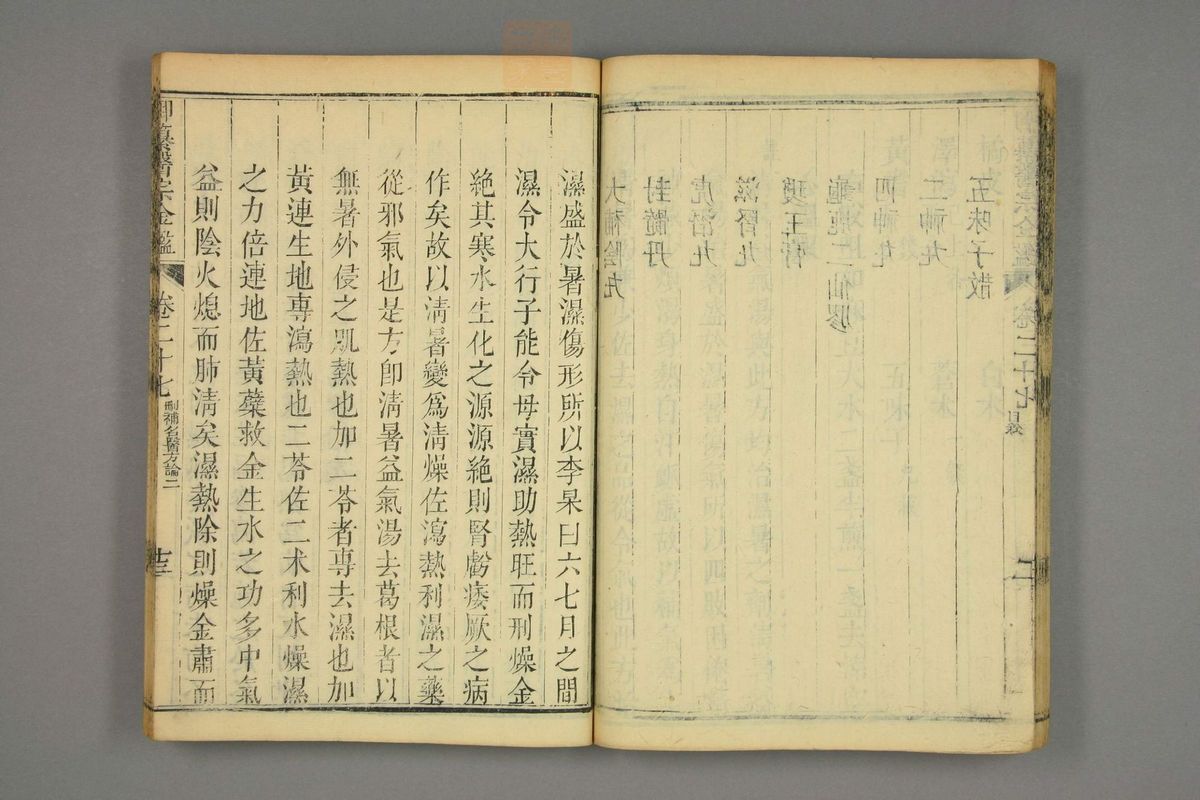 五味子散
二神丸
四神丸
龜鹿二仙膠
瓊玉膏
滋腎丸
虎潛丸
封髓丹
大補陰丸
卷二十七
目錄
濕盛於暑濕傷形所以李杲曰六七月之間
濕令大行子能令母實濕助熱旺而刑燥金
絶其寒水生化之源源絶則腎虧痿厥之病
作矣故以清暑變爲清燥佐瀉熱利濕之藥
從邪氣也是方卽清暑益氣湯去葛根者以
無暑外侵之肌熱也加二苓者專去濕也加
黃連生地專瀉熱也二苓佐二术利水燥濕
之力倍連地佐黃蘗救金生水之功多中氣
益則陰火熄而肺清矣濕熱除則燥金肅而
御纂醫宗金鑑
卷二十七
刪補名醫方論二
十三